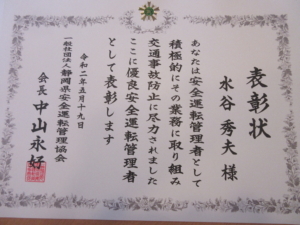 表彰状
水谷秀夫様
あなたは安全運転管理者として
積極的にその業務に取り組み
交通事故防止に尽力されました
ここに優良安全運転管理者
として表彰します
令和二年五月十九日
一般社団法人静岡県安全運転管理協会
会長中山永好